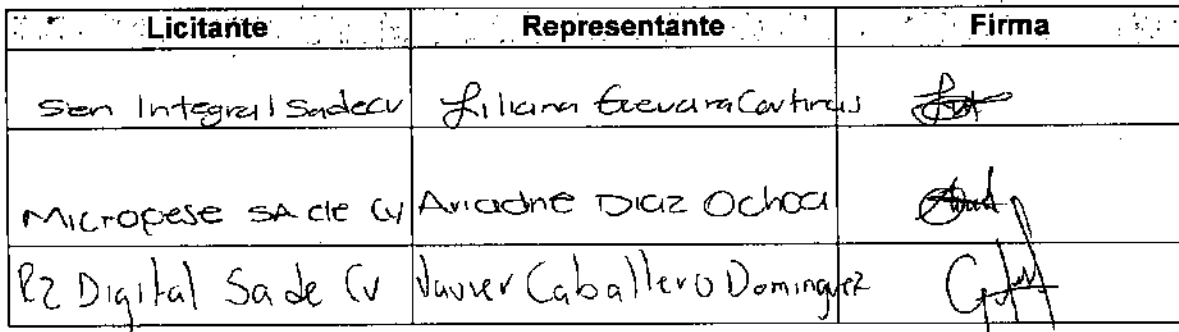 Licitante Representante Firma
Sien Integral Sa de CV Liliana Guevara
Micropese SA de CV Ariadne Diaz Ochoa
R2 Digital Sa de CV Javier Caballero Dominguez